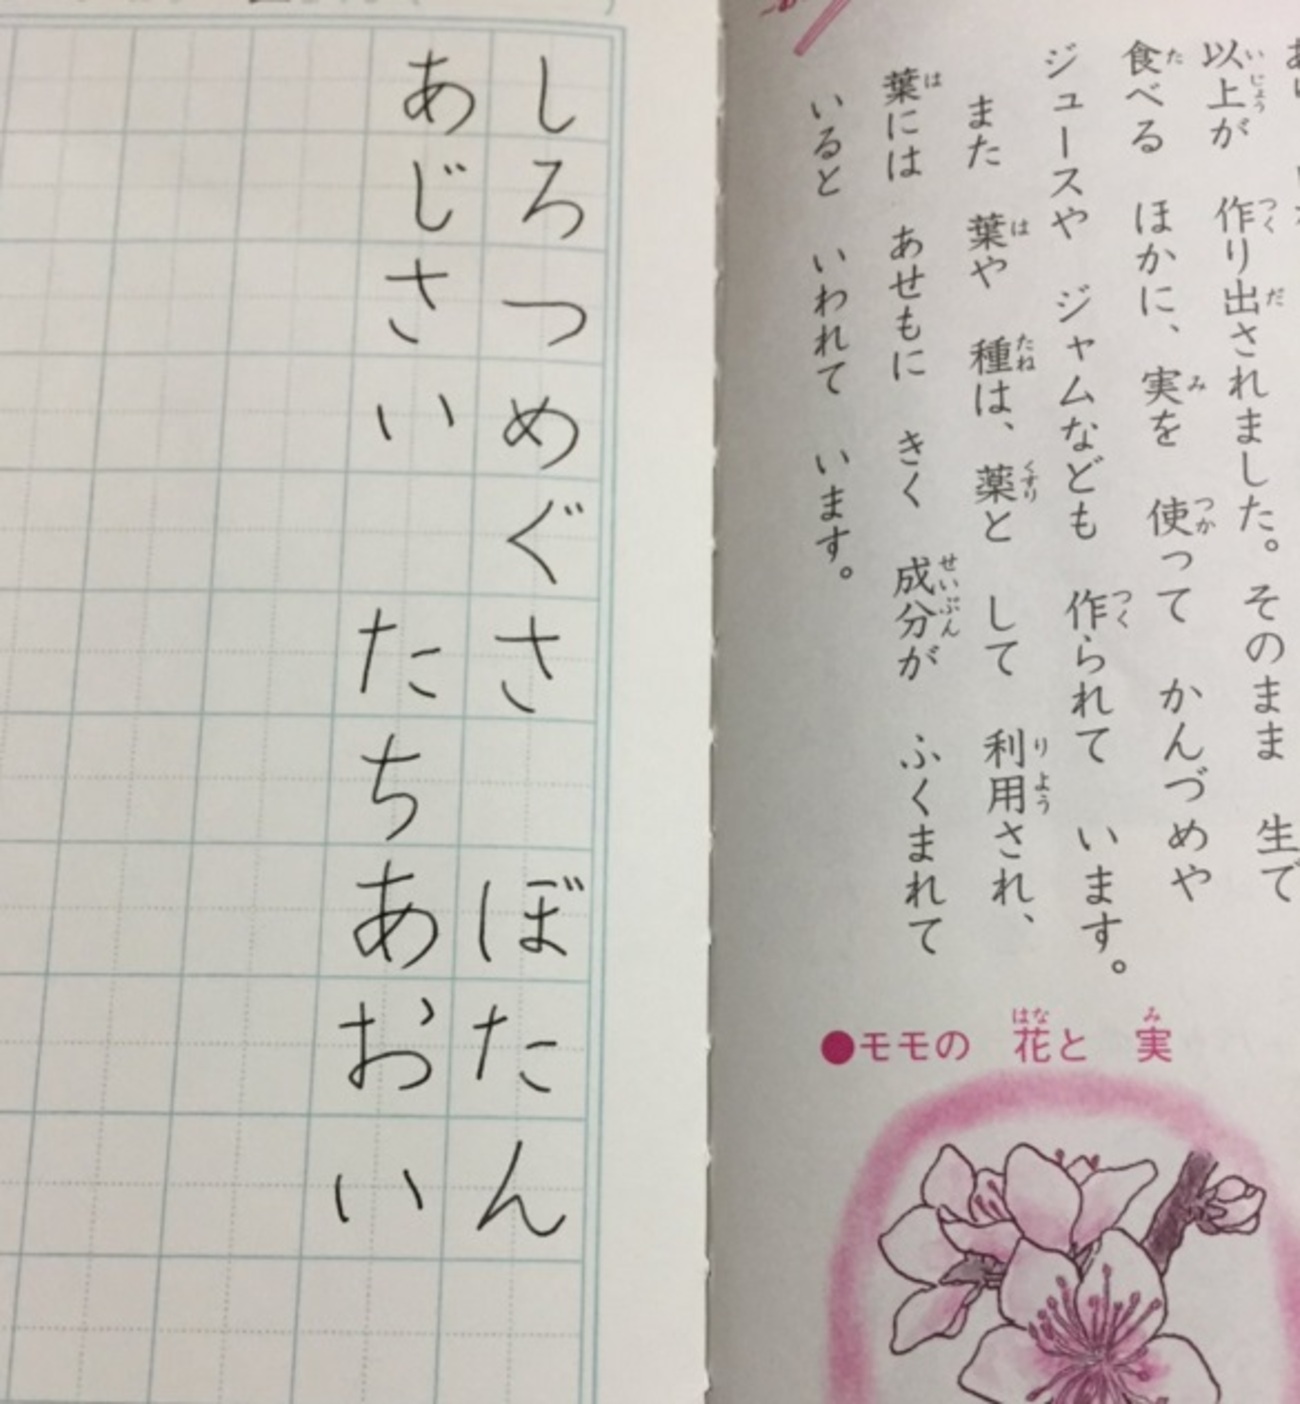 以上が 作り出されました。そのまま 生で
食べる ほかに、実を 使って かんづめや
ジュースや ジャムなども 作られて います。
また 葉や 種は、薬と して 利用され、
葉には あせもに きく 成分が ふくまれて
いると いわれて います。
●モモの 花と 実
しろつめぐさ ぼたん
あじさい たちあおい